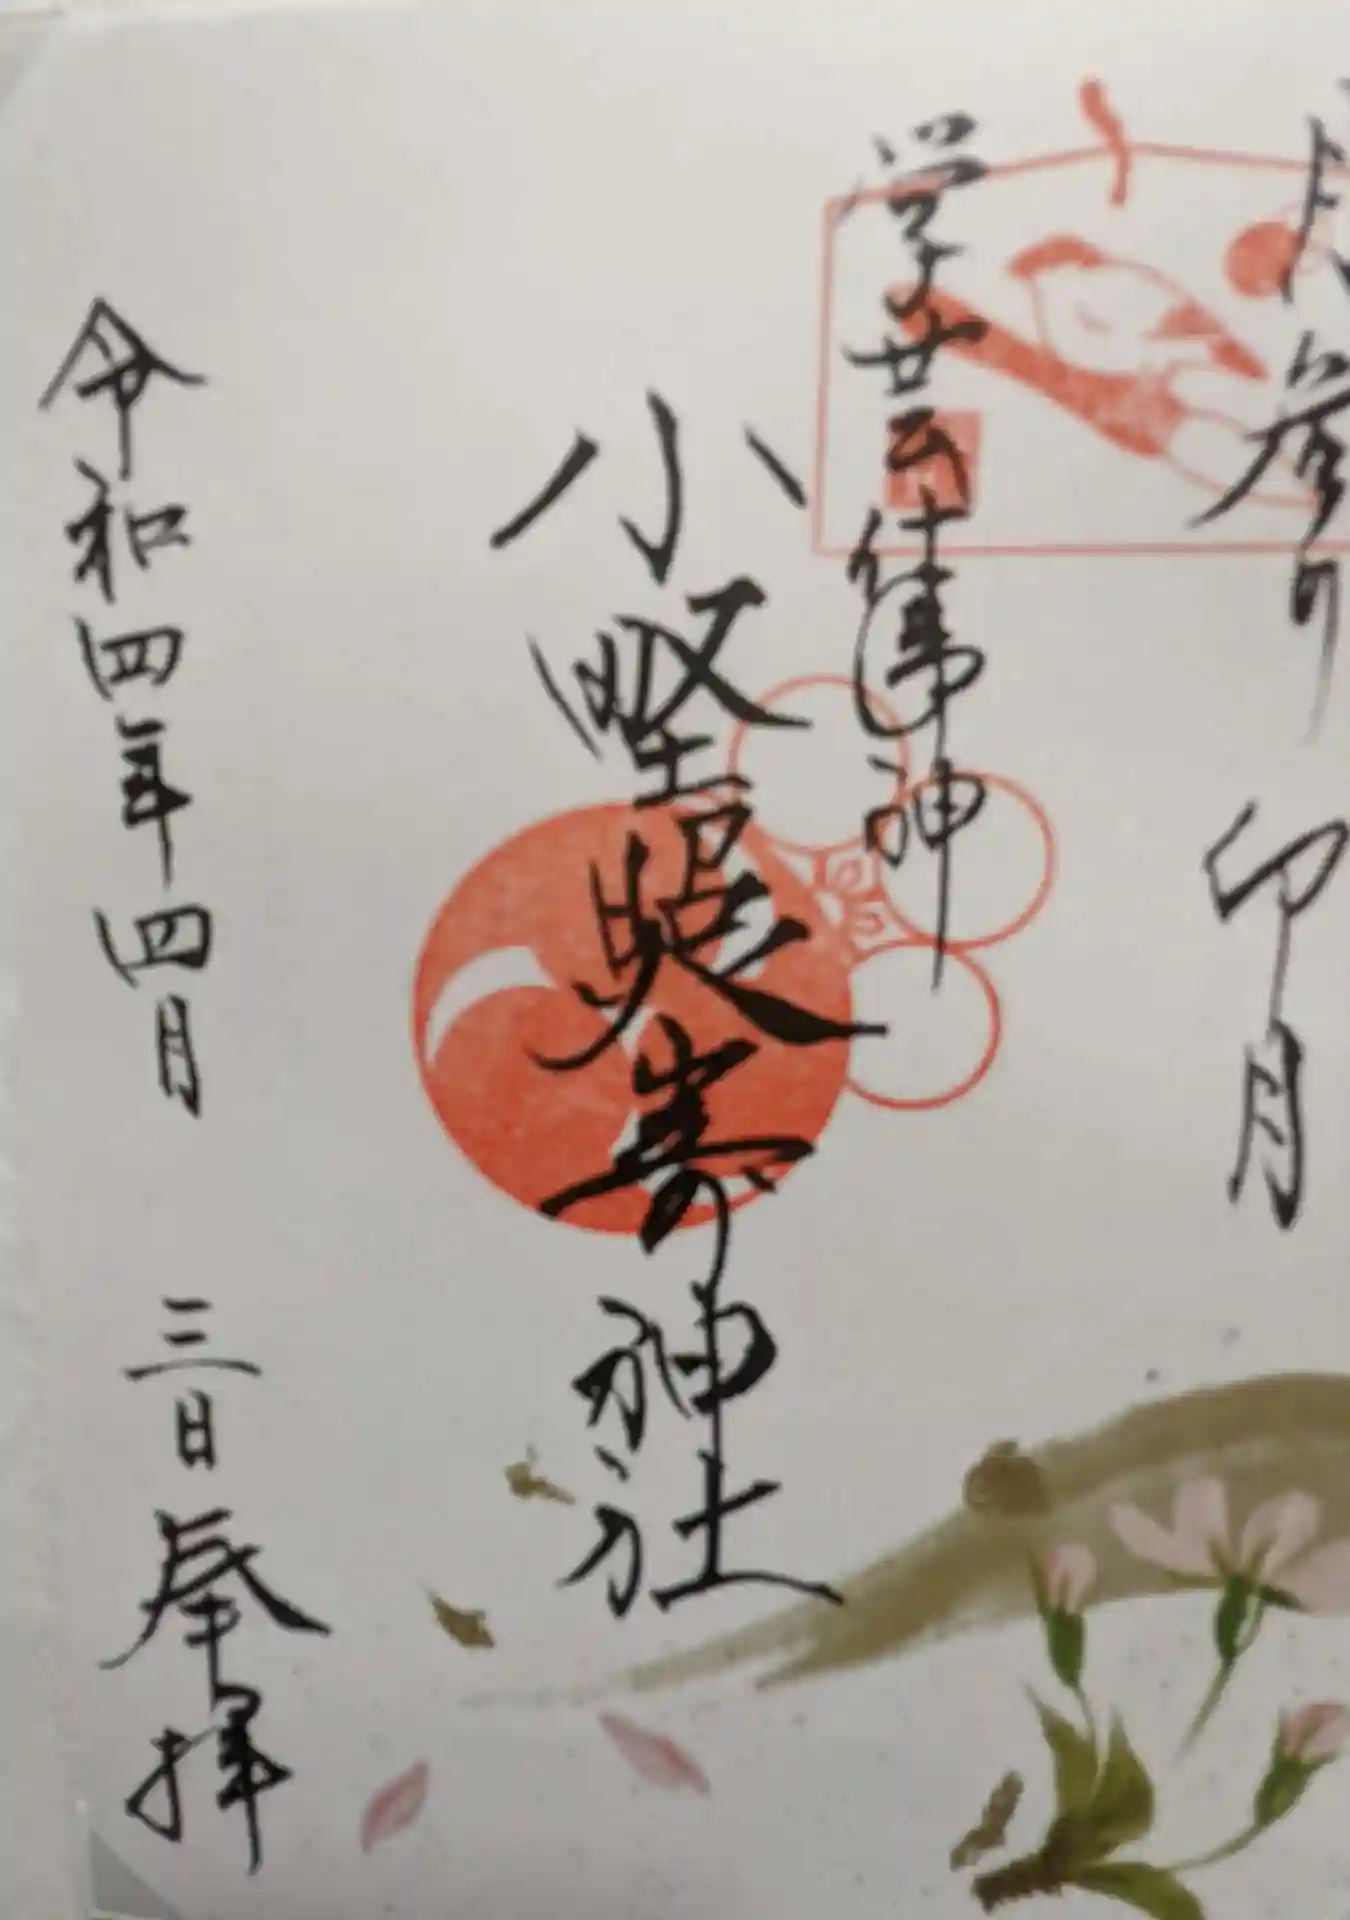 月参り 卯月
学芸仕事神
小野照崎神社
令和四年四月 三日 奉拝